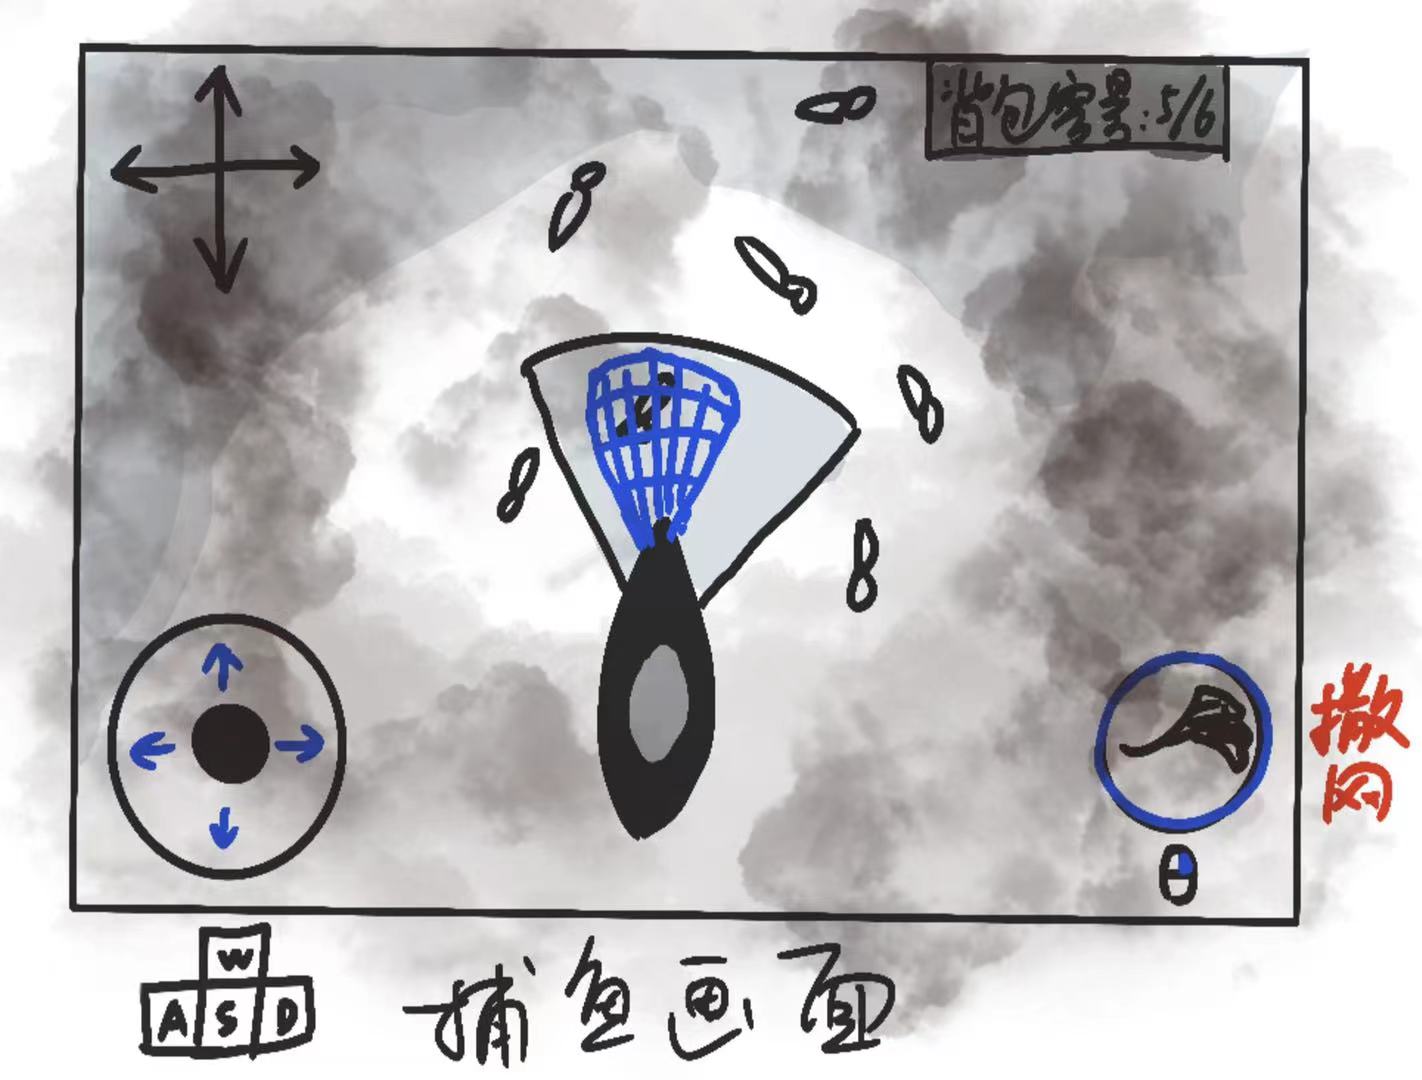 背包容量:5/6
撒
网
W
A S D
捕鱼画面